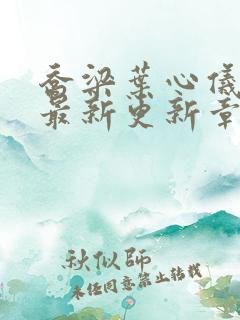 乔梁葉心儀
最新更新章
秋似師
未经同意禁止转载